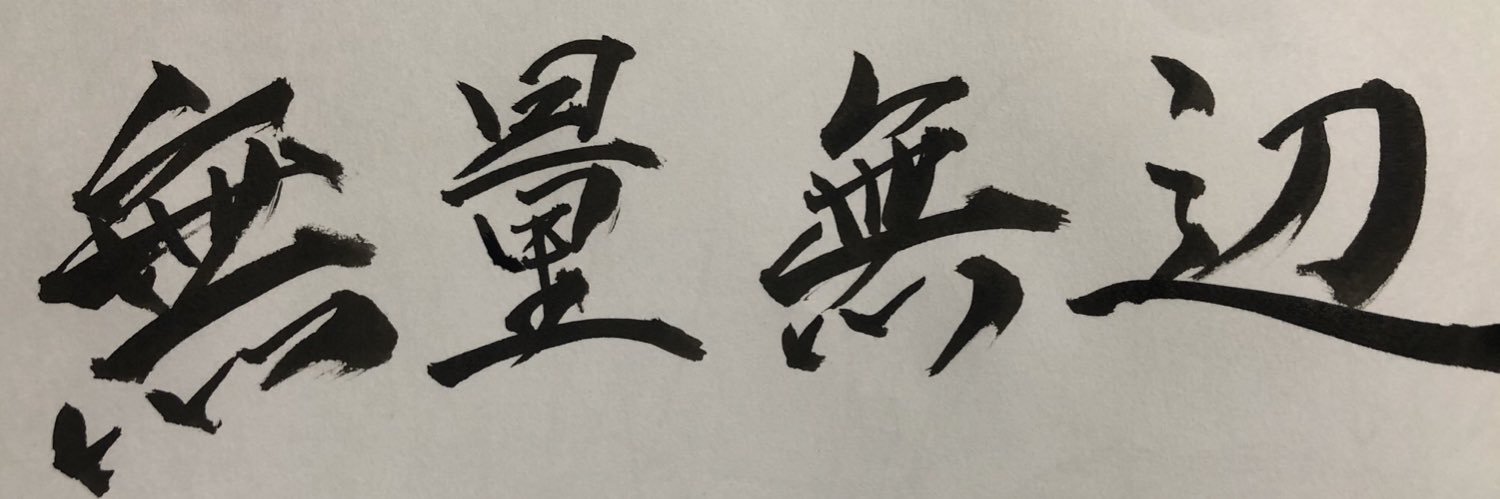 無量無辺